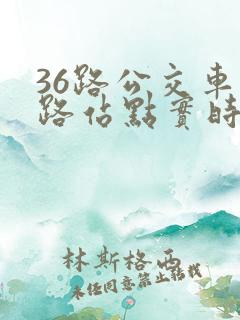 36路公交車
路佔點實時
林斯格西
未经同意禁止转载